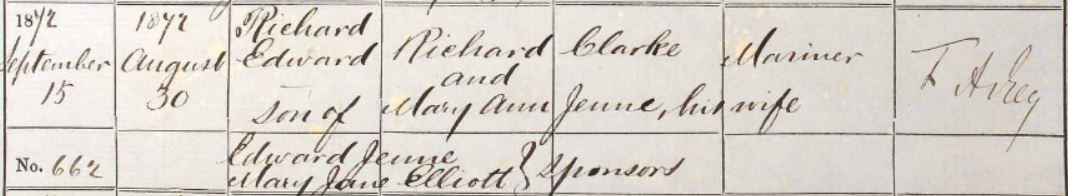 1872 1872 Richard
September August Edward Richard Clarke Mariner
15 30 son of and
Mary Ann Jenne, his wife
No. 662 Edward Jenne
Mary Jane Elliott } Sponsors